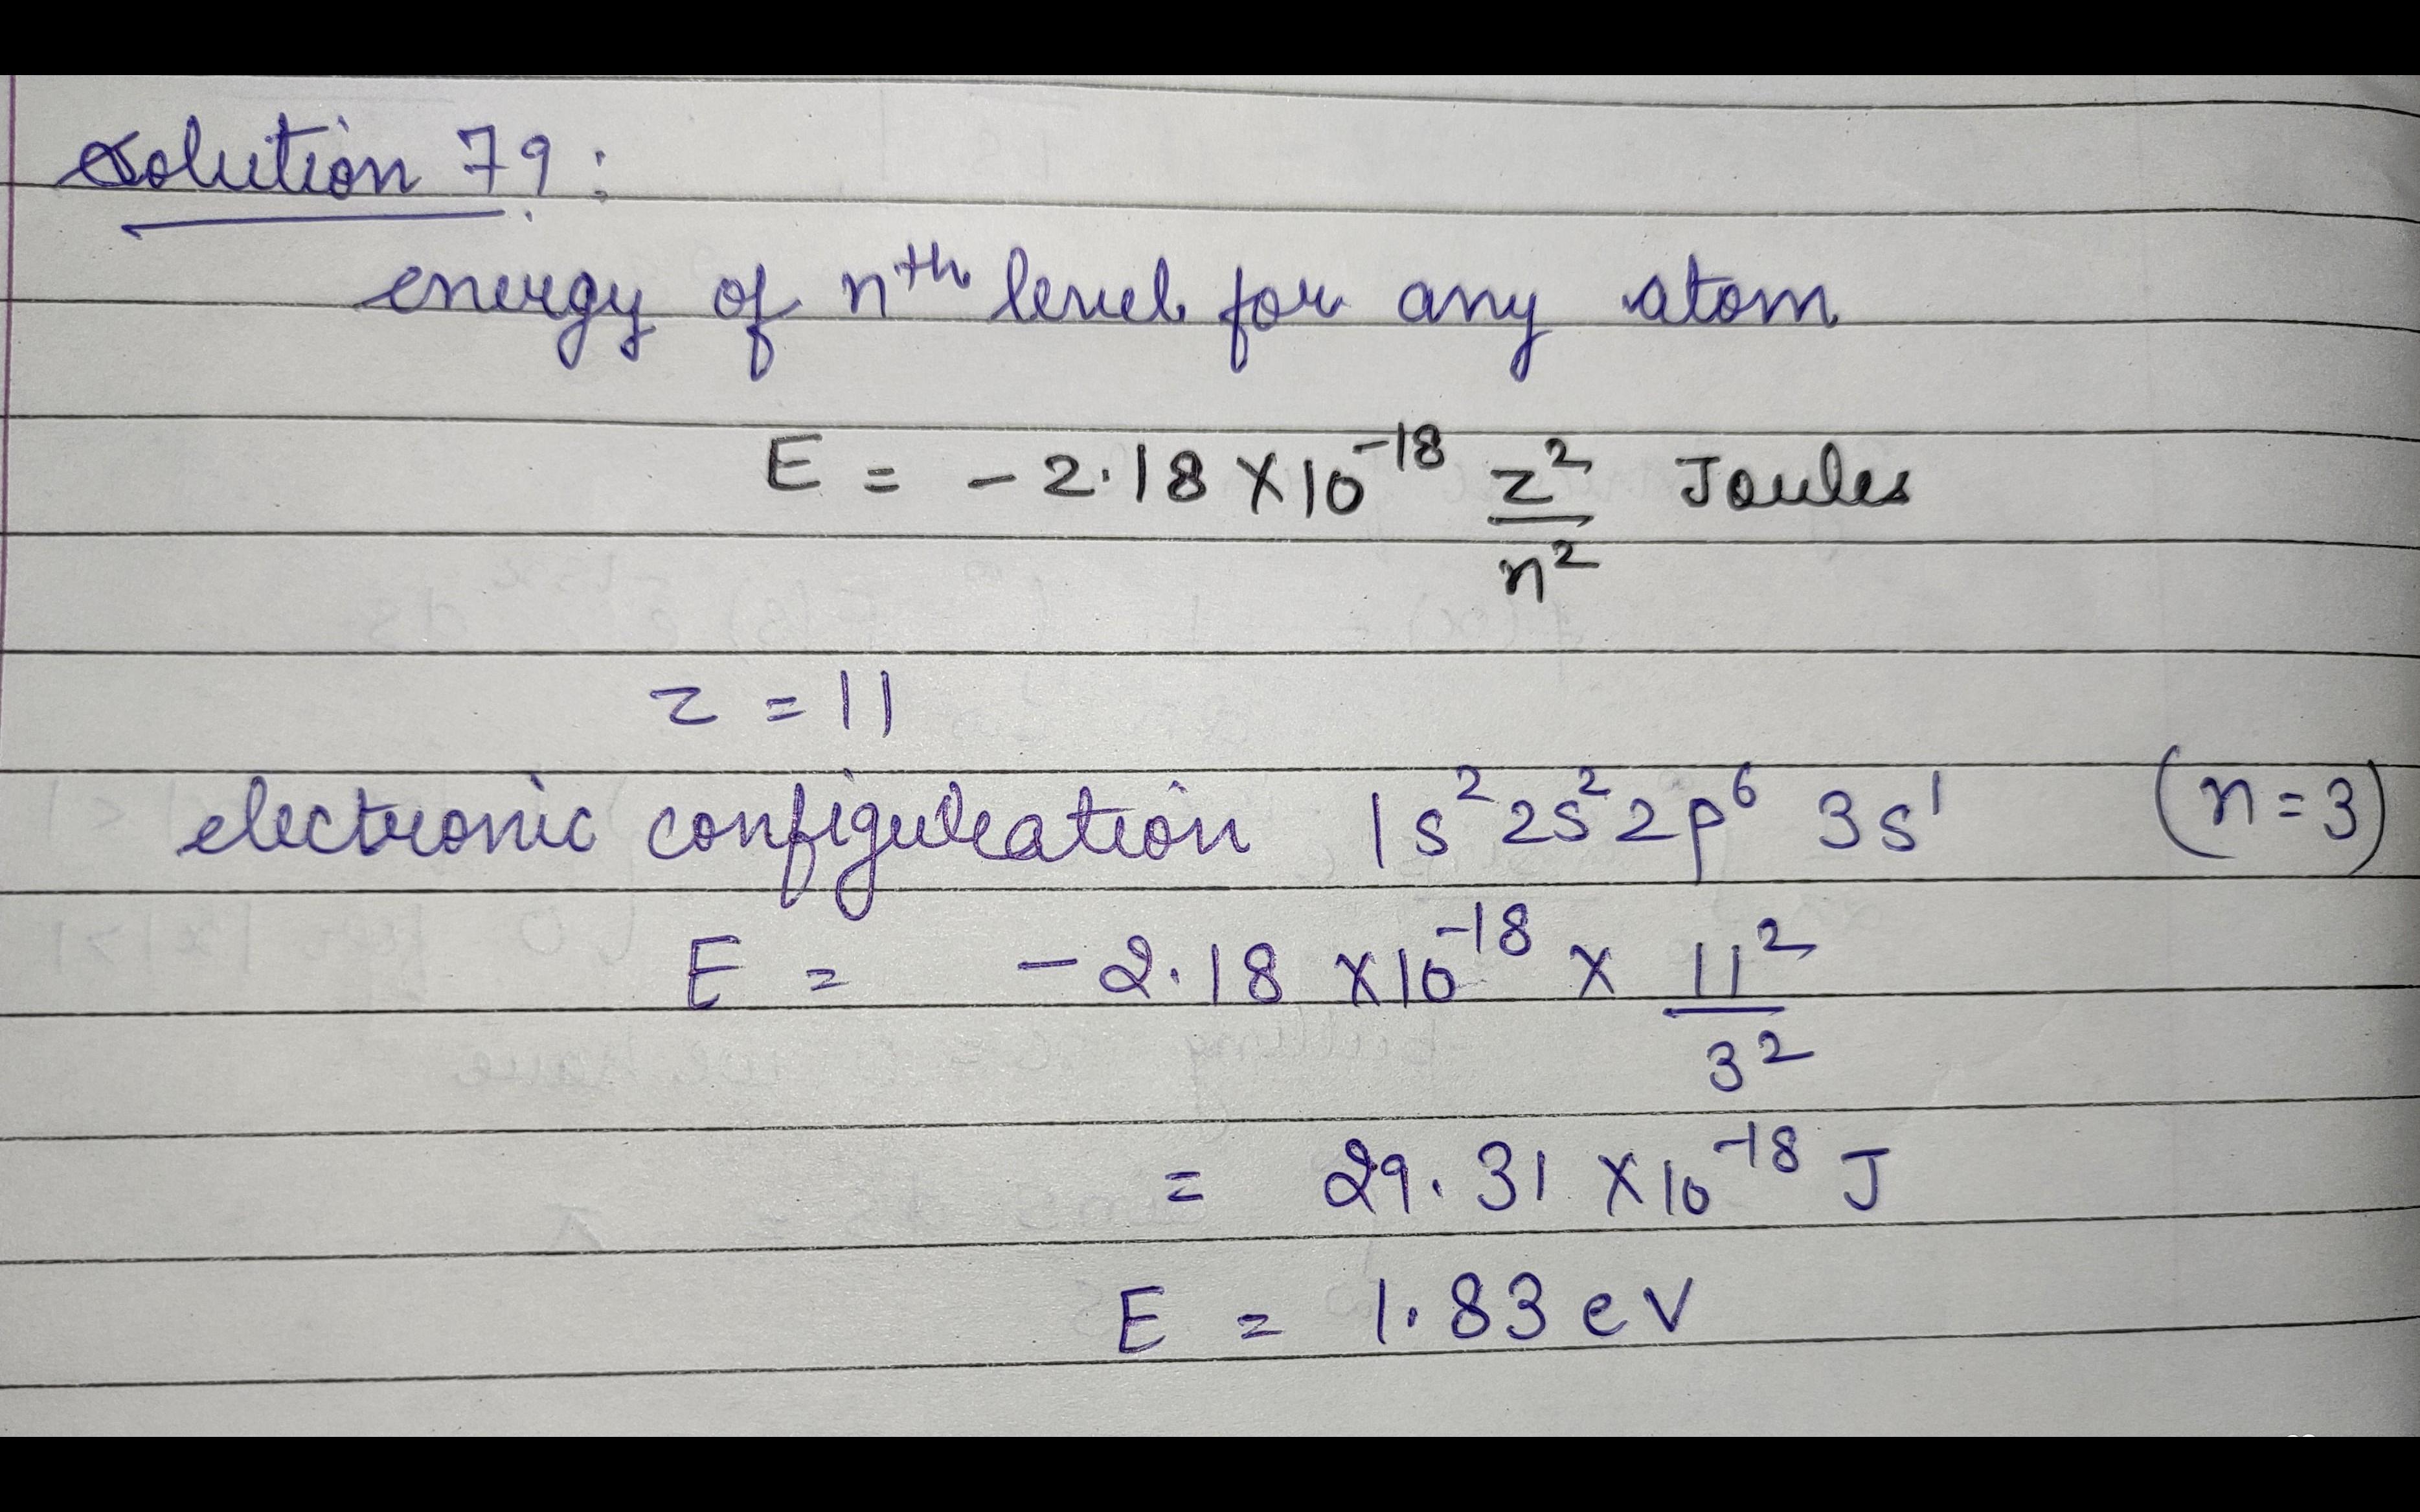 Solution 79:
energy of nᵗʰ level for any atom
E = -2.18 X10⁻¹⁸ z²/n² Joules
z = 11
electronic configuration 1s² 2s² 2p⁶ 3s¹ (n=3)
E = -2.18 X10⁻¹⁸ X 11²/3²
= 29.31 X10⁻¹⁸ J
E = 1.83 eV